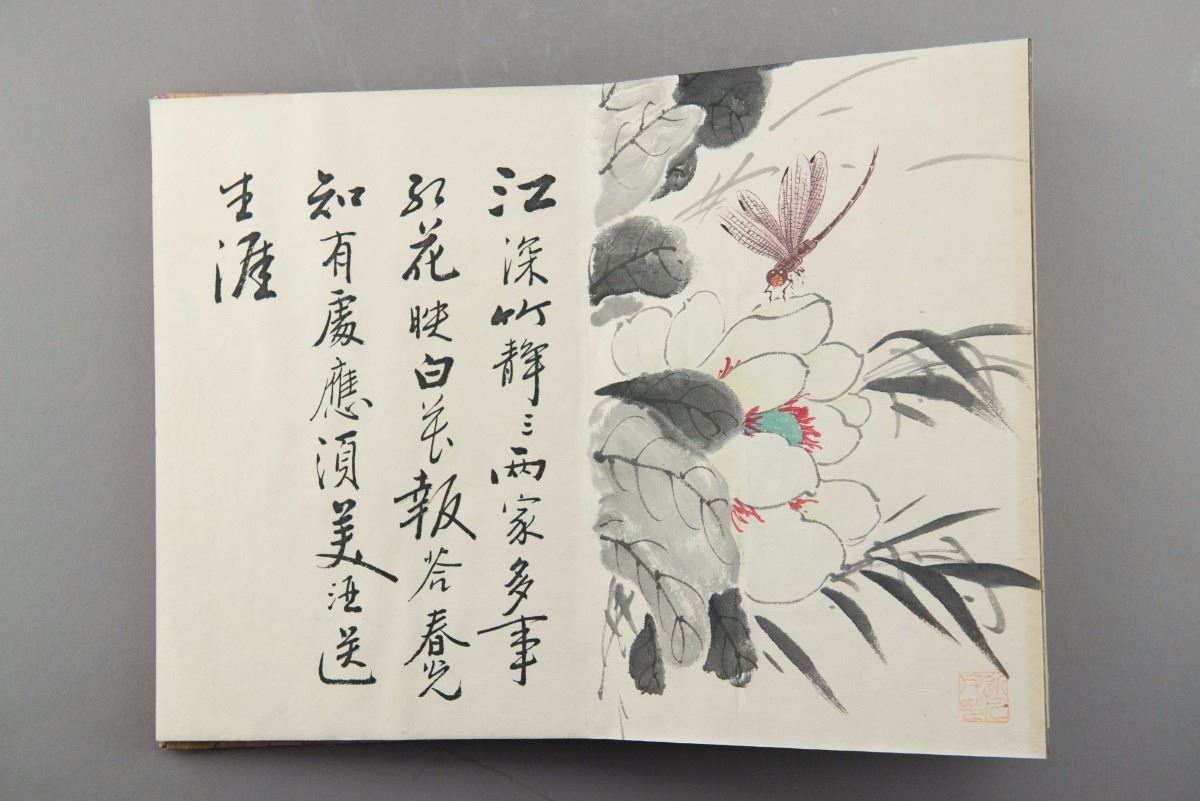 江深竹静三兩家多事
红花映白花報答春光
知有處應須美酒送
生涯